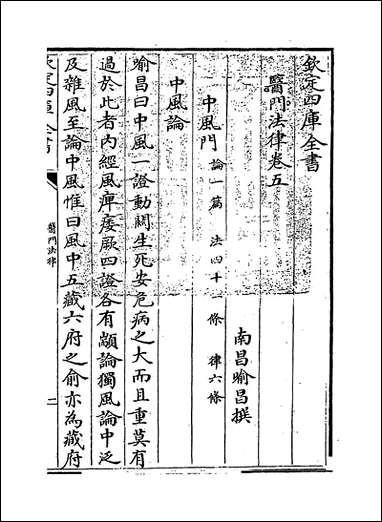 欽定四庫全書
醫門法律卷五
南昌喻昌撰
中風門 論一篇 法四十一條 律六條
中風論
喻昌曰中風一證動關生死安危病之大而且重莫有
過於此者内經風痺痿厥四證各有顓論獨風論中泛
及雜風至論中風惟曰風中五藏六府之俞亦為藏府
欽定四庫全書
醫門法律
二